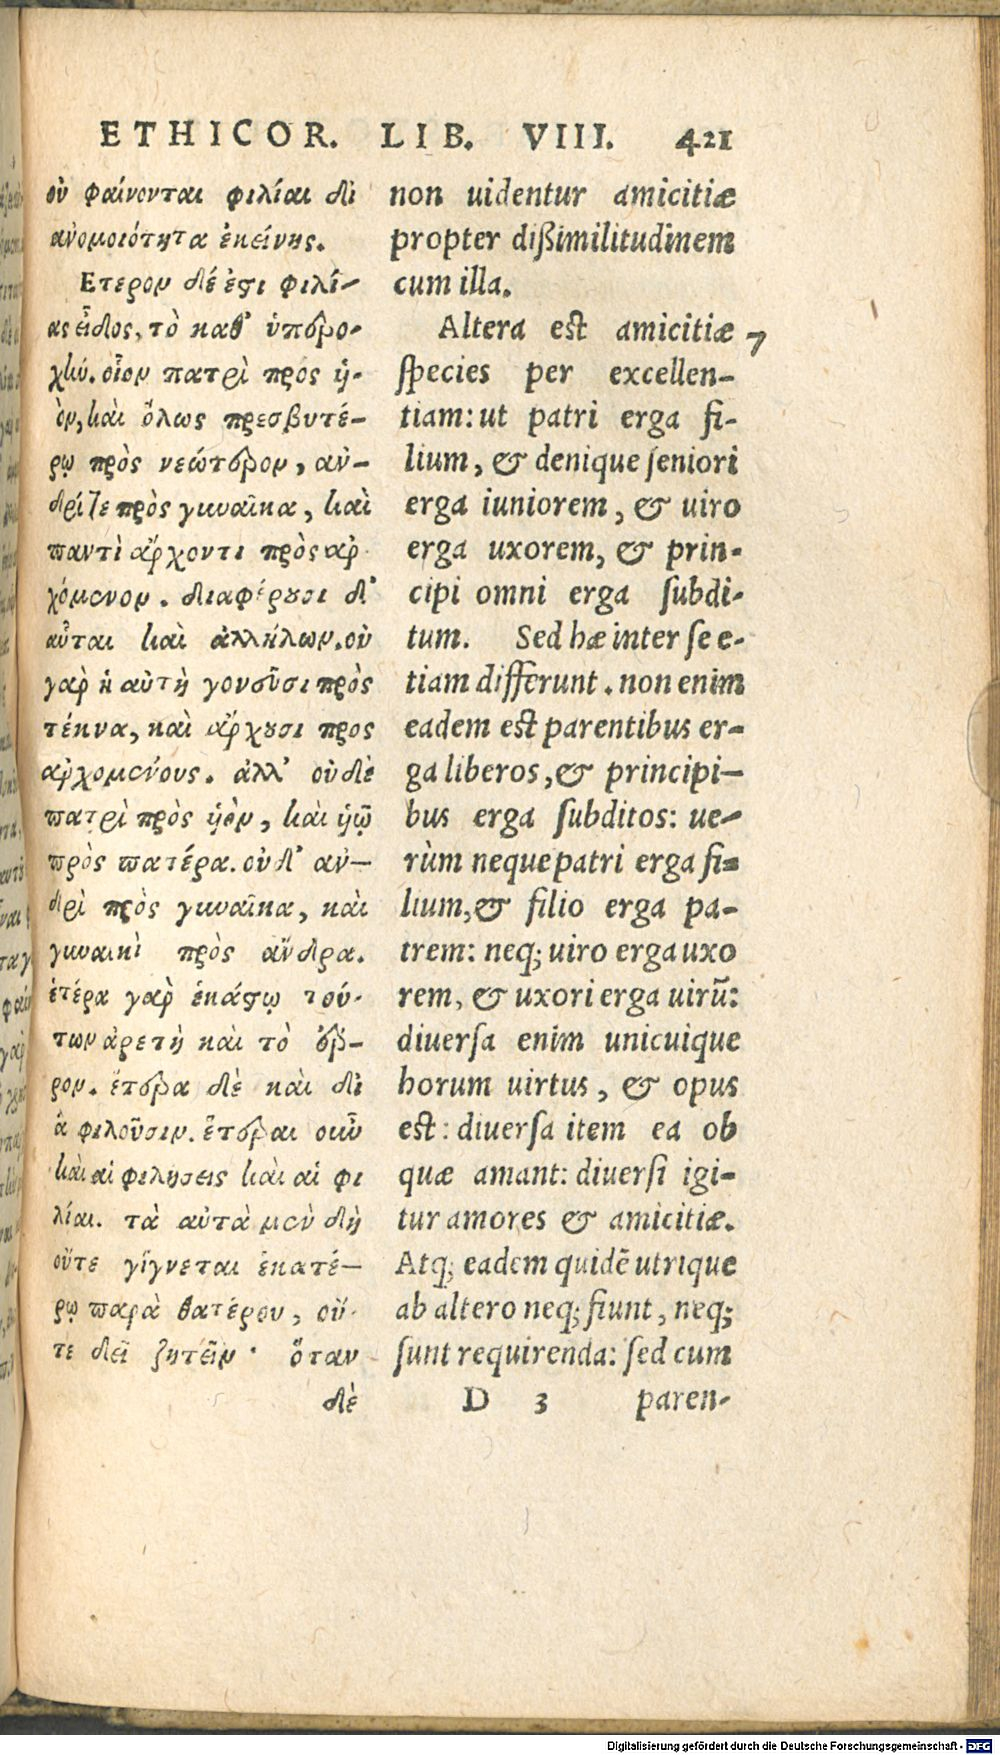 ETHICOR. LIB. VIII. 421
οὐ φαίνονται φιλίαι δι
ανομοιότητα ἐκείνης.
Ετερον δέ ἐστι φιλί-
ας εἶδος, τὸ καθ' ὑπερο-
χὴν. οἷον πατρὶ πρὸς ὑ-
ὸν, καὶ ὅλως πρεσβυτέ-
ρῳ πρὸς νεώτερον, αν-
δρί τε πρὸς γυναῖκα, καὶ
παντὶ ἄρχοντι πρὸς αρ-
χόμενον. διαφέρουσι δ'
αὗται καὶ ἀλλήλων. οὐ
γαρ ἡ αὐτὴ γονεῦσι πρὸς
τέκνα, καὶ ἄρχουσι προς
αρχομένους. ἀλλ' οὐδὲ
πατρὶ πρὸς ὑὸν, καὶ ὑῷ
πρὸς πατέρα. οὐδ' αν-
δρὶ πρὸς γυναῖκα, καὶ
γυναικὶ πρὸς ἄνδρα.
ἑτέρα γαρ ἑκάστῳ τού-
των ἀρετὴ καὶ τὸ ἔρ-
γον. ἕτερα δὲ καὶ δι
ἃ φιλοῦσιν. ἕτεραι οὖν
καὶ αἱ φιλήσεις καὶ αἱ φι
λίαι. τὰ αὐτὰ μὲν δὴ
οὔτε γίγνεται ἑκατέ-
ρῳ παρὰ θατέρου, οὔ-
τε δεῖ ζητεῖν· ὅταν
δὲ
non uidentur amicitiæ
propter dißimilitudinem
cum illa.
Altera est amicitiæ 7
species per excellen-
tiam: ut patri erga fi-
lium, & denique seniori
erga iuniorem, & uiro
erga uxorem, & prin-
cipi omni erga subdi-
tum. Sed hæ inter se e-
tiam differunt. non enim
eadem est parentibus er-
ga liberos, & principi-
bus erga subditos: ue-
rùm neque patri erga fi-
lium, & filio erga pa-
trem: neq; uiro erga uxo
rem, & uxori erga uirũ:
diuersa enim unicuique
horum uirtus, & opus
est: diuersa item ea ob
quæ amant: diuersi igi-
tur amores & amicitiæ.
Atq; eadem quidẽ utrique
ab altero neq; fiunt, neq;
sunt requirenda: sed cum
D 3 paren-
Digitalisierung gefördert durch die Deutsche Forschungsgemeinschaft - DFG